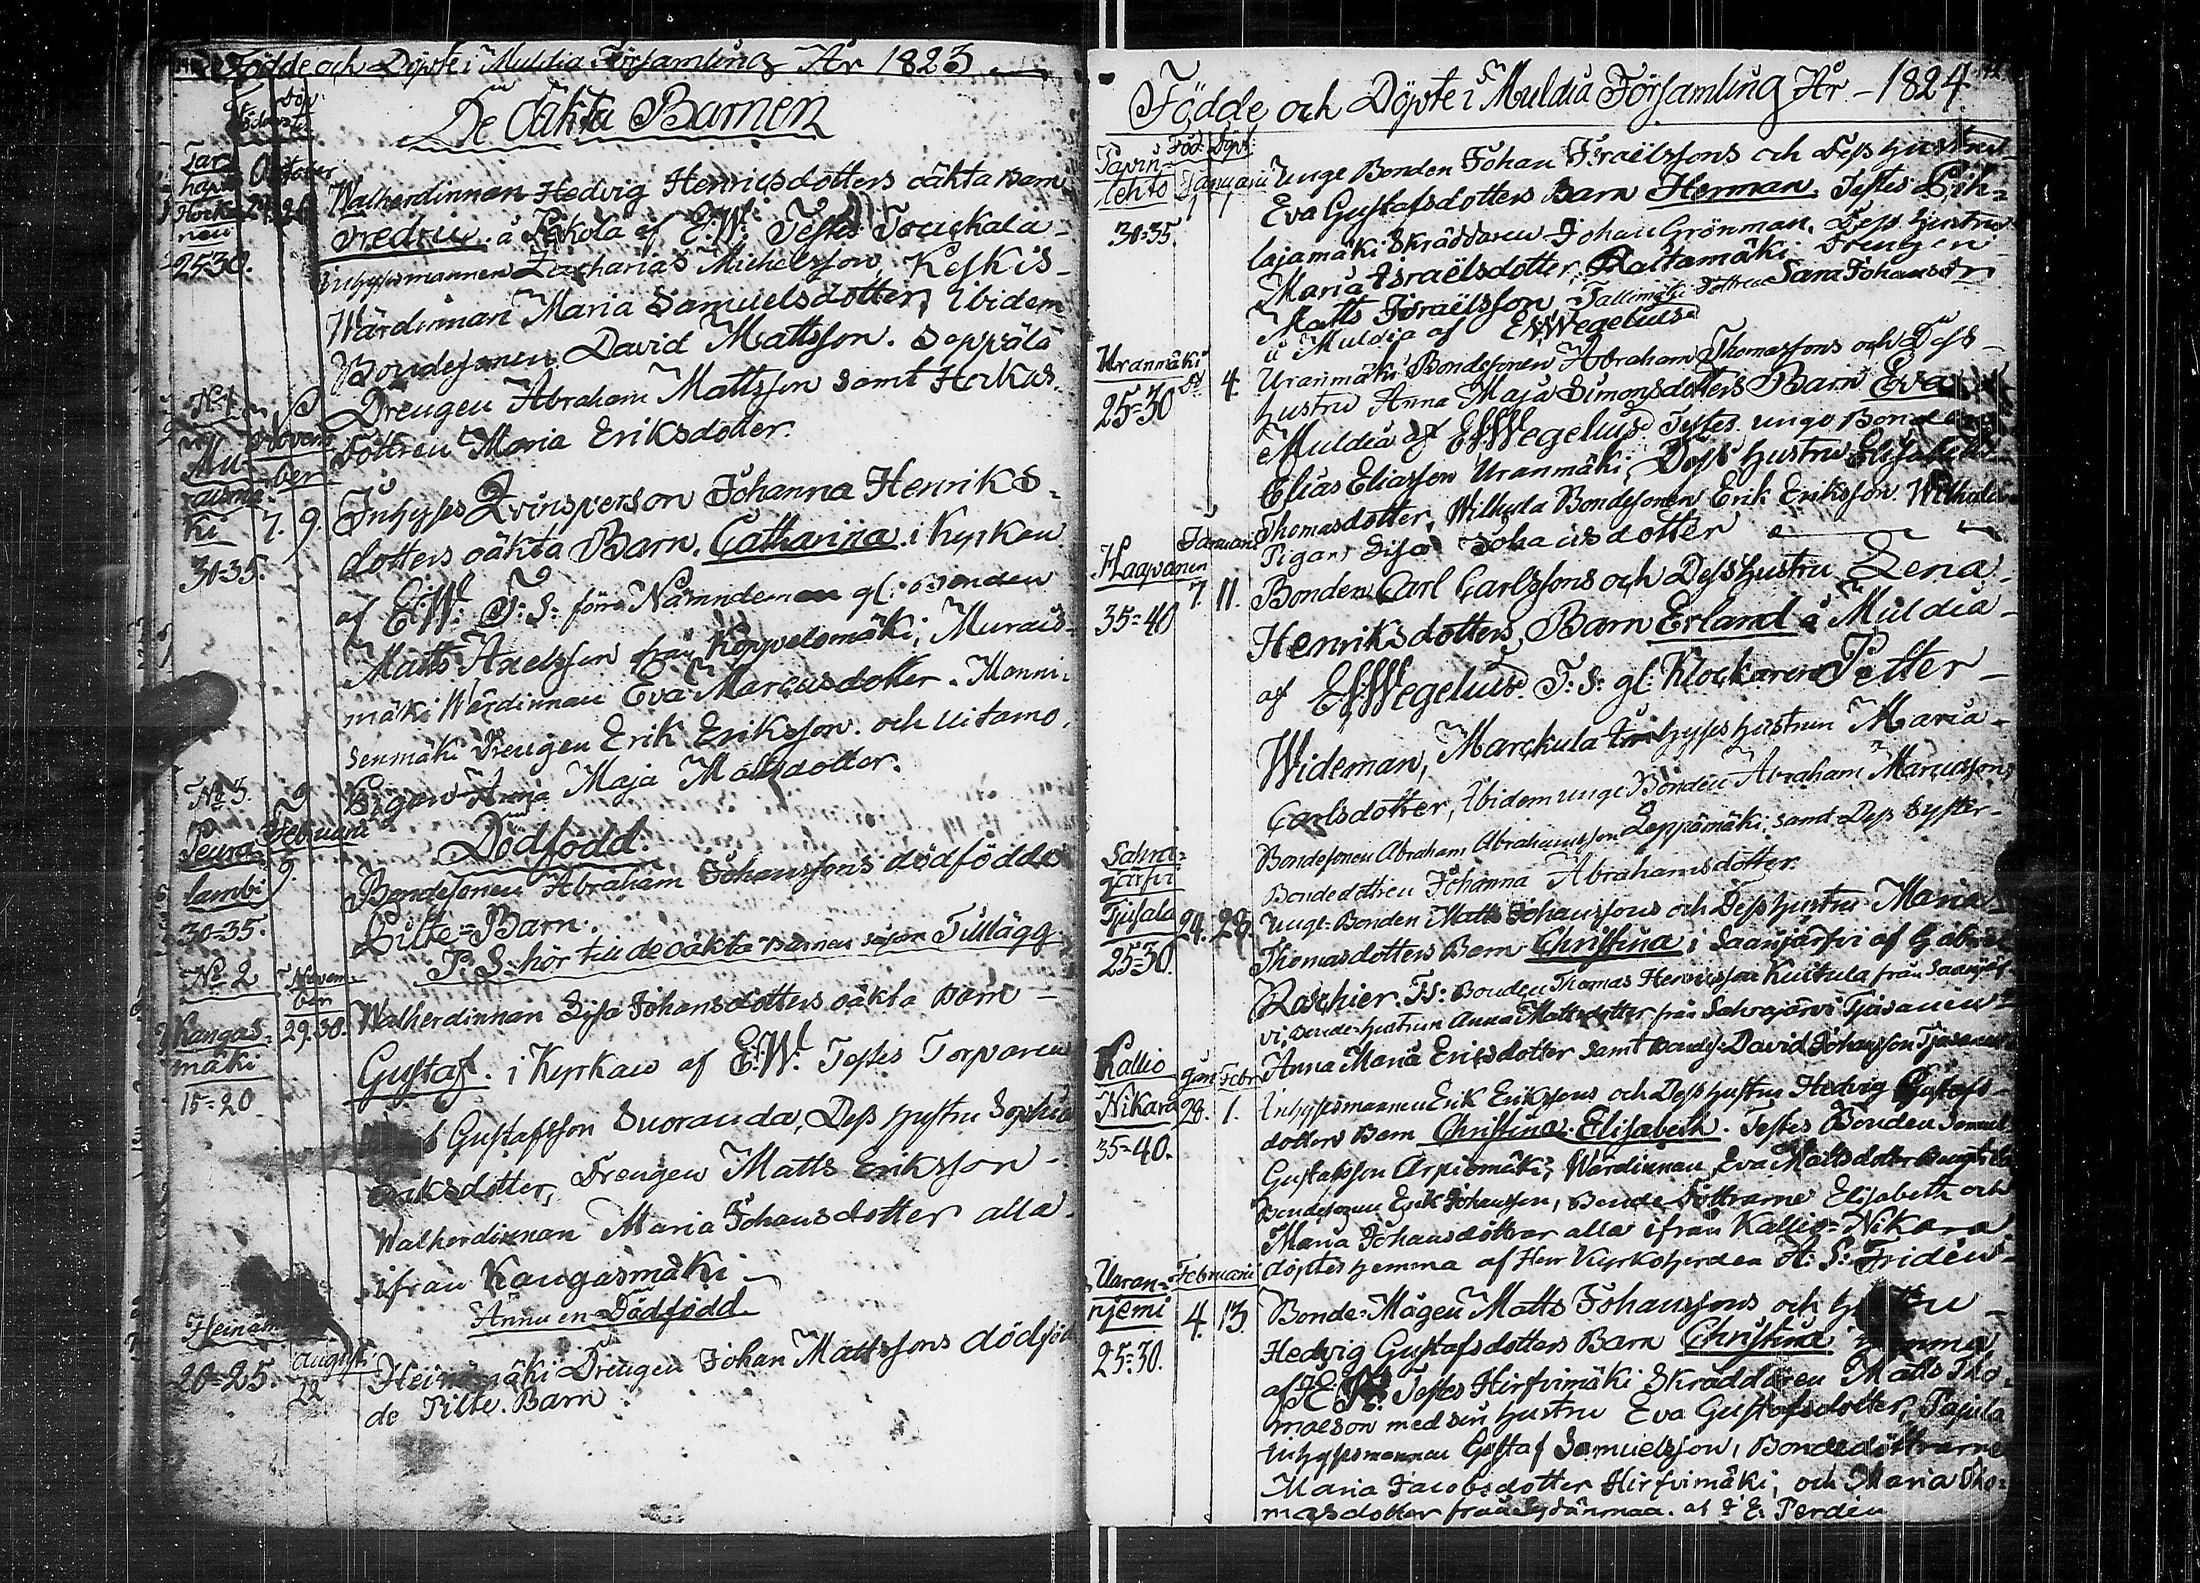 Födde och Döpte i Muldia Församling År 1823
De oäkta Barnen
October
24. 26
25-30.
Walherdinnan Hedvig Henricsdotters oäkta Barn
Fredric. å Pekola af E:W: Testes Touckala
Inhysesmannen Zacharias Michelsson, Keskis-
Wärdinnan Maria Samuelsdotter, Ibidem
Bondesonen David Mattsson. Seppälä
Drengen Abraham Mattsson samt Horkas
Dottren Maria Eriksdotter.
November
7. 9.
30-35.
Inhyses Qvinsperson Johanna Henriks-
dotters oäkta Barn. Catharina i Kyrkan
af E:W: T: S: förre Nämndeman gl: Bonden
Matts Axelsson från Koppelomäki, Murais-
mäki Wärdinnan Eva Marcusdotter. Manni-
senmäki Drengen Erik Eriksson. och Uitamo.
Pigan Anna Maja Mattsdotter.
No 3.
Peura
lambi
30-35.
Februari
9.
Dödfödd.
Bondesonen Abraham Johanssons dödfödde
Pilte=Barn.
P. S. hör till de oäkta Barnen såsom Tillägg
No 2
Kangas-
mäki
15=20
Novem-
ber
29. 30.
Walherdinnan Lisa Johansdotters oäkta Barn
Gustaf. i Kyrkan af E:W: Testes Torparen
Gustafsson Suoranda, Dess Hustru Sophia
Eriksdotter, Drengen Matts Eriksson
Walherdinnan Maria Johansdotter alla
ifrån Kangasmäki
Ännu en Dödfödd.
20=25.
Augusti
22
Heinämäki Drengen Johan Mattssons dödföd
de Pilte. Barn
Födde och Döpte i Muldia Församling År - 1824
Föd: Döpt:
Januari
1 1
30=35.
Unge Bonden Johan Israëlssons och Dess Hustru
Eva Gustafsdotters Barn Herman. Testes Pih-
lajamäki Skräddaren Johan Grönman, Dess Hustru
Maria Israëlsdotter, Raitamäki Drengen
Matts Israëlsson, Tallimäki Dottren Sara Johansdr
å Muldia af E:Wegelius
Uranmäki
25=30
4.
Uranmäki Bondesonen Abraham Thomassons och Dess
hustru Anna Maja Simonsdotters Barn Eva
Muldia af E:Wegelius Testes unge Bonden
Elias Eliasson Uranmäki, Dess hustru Elisabeth
Thomasdotter, Wilkula Bondesonen Erik Eriksson. Wilkula
Pigan Lisa Johansdotter
Haapanen
35=40
Januari
7. 11.
Bonden Carl Carlssons och Dess Hustru Lena
Henriksdotters Barn Erland å Muldia
af E:Wegelius. T: S: gl: Klockaren Petter
Wideman, Marckula Inhyses hustrun Maria
Carlsdotter, Ibidem unge Bonden Abraham Marcusson,
Bondesonen Abraham Abrahamsson Leppämäki, samt Dess Syster
Bondedottren Johanna Abrahamsdotter.
Sahra-
jarfvi
Tjusala
25=30.
24. 28.
Unge Bonden Matts Johanssons och Dess hustru Maria
Thomasdotters Barn Christina i Saarijärfvi af Gabriel
Roschier. T:S: Bonden Thomas Henricsson Kuitula från Saarijärf
vi, Bonde-hustrun Anna Mattsdotter från Sahrajärvi Tjusanen
Anna Maria Ericsdotter samt Bondes: David Johansson Tjusanen
Kallio
Nikara
35=40.
Jan Febr
28. 1.
Inhysesmannen Erik Erikssons och Dess hustru Hedvig Gustafs-
dotters Barn Christina Elisabeth. Testes Bonden Samuel
Gustafsson Arpiomäki, Wärdinnan Eva Mattsdotter
Bondesonen Erik Johansson, Bonde Döttrarne Elisabeth och
Maria Johansdöttrar alla ifrån Kallio-Nikara
döptes hemma af Herr Kyrkoherden A: S: Fridén
Uuran-
njemi
25=30.
Februari
4. 13.
Bonde-Mågen Matts Johanssons och
Hedvig Gustafsdotters Barn Christina hemma
af Testes Hirfvimäki Skräddaren Matts Tho-
masson med sin hustru Eva Gustafsdotter, Pajula
Inhysesmannen Gustaf Samuelsson, Bondedöttrarne
Maria Jacobsdotter Hirfvimäki, och Maria Tho-
masdotter från Sydänmaa. af E. Perdén